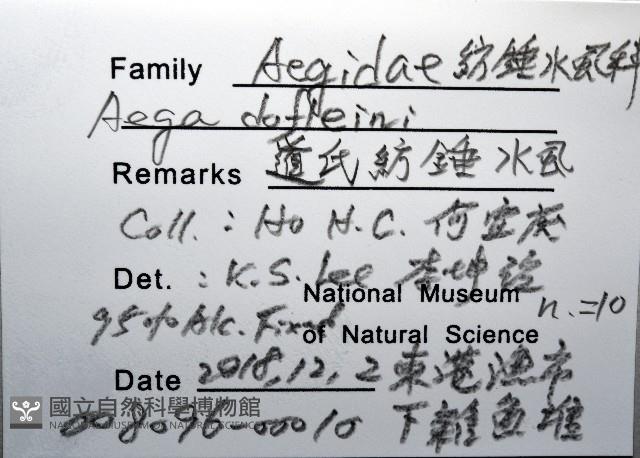 Family Aegidae 紡錘水虱科
Aega dofleini
Remarks 道氏紡錘水虱
Coll. : Ho H.C. 何宣慶
Det. : K.S. Lee 李坤瑄
National Museum n.=10
95% Alc. Fixed of Natural Science
Date 2018,12,2 東港漁市
國立自然科學博物館
NATIONAL MUSEUM OF NATURAL SCIENCE
8096-00010 下雜魚堆